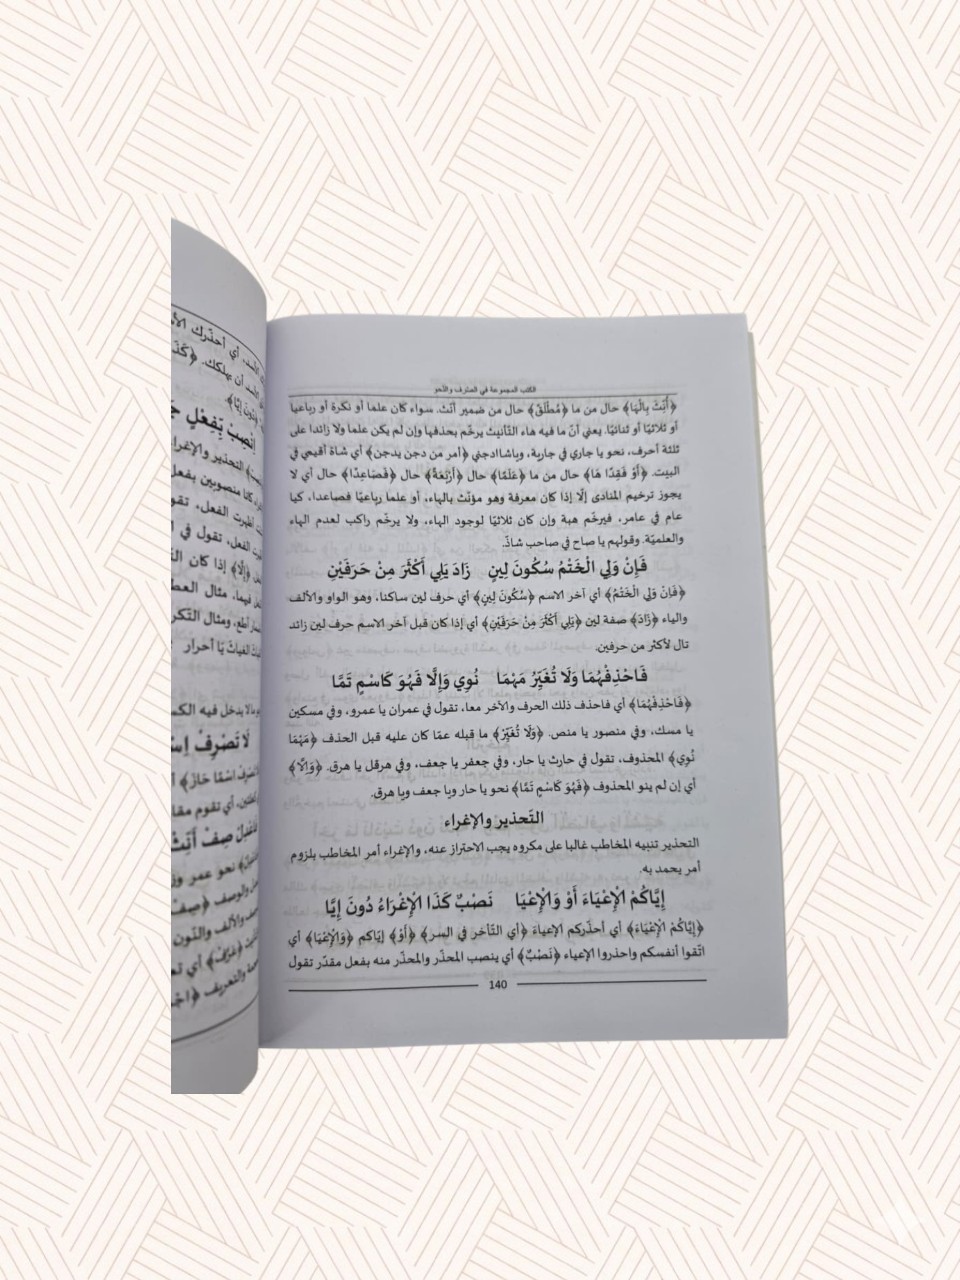 الكتب المجموعة في الصّرف والنّحو
﴿أُنِّثَ بِالْهَا﴾ حال من ما ﴿مُطْلَقْ﴾ حال من ضمير أنّث. سواء كان علما أو نكرة أو رباعيا
أو ثلاثيّا أو ثنائيّا. يعني أنّ ما فيه هاء التّأنيث يرخّم بحذفها وإن لم يكن علما ولا زائدا على
ثلثة أحرف، نحو يا جاري في جارية، وياشاادجني ﴿أمر من دجن يدجن﴾ أي شاة أقيحي في
البيت. ﴿أَوْ فَقِدًا هَا﴾ حال من ما ﴿عَلَمًا﴾ حال ﴿أَرْبَعَةً﴾ حال ﴿فَصَاعِدًا﴾ حال أي لا
يجوز ترخيم المنادى إلّا إذا كان معرفة وهو مؤنّث بالهاء، أو علما رباعيّا فصاعدا، كيا
عام في عامر، فيرخّم هبة وإن كان ثلاثيّا لوجود الهاء، ولا يرخّم راكب لعدم الهاء
والعلميّة. وقولهم يا صاح في صاحب شاذّ.
فَإِنْ وَلِي الْخَتْمُ سُكُونَ لِينٍ زَادَ يَلِي أَكْثَرَ مِنْ حَرَفَيْنِ
﴿فَإِنْ وَلِي الْخَتْمُ﴾ أي آخر الاسم ﴿سُكُونَ لِينٍ﴾ أي حرف لين ساكنا، وهو الواو والألف
والياء ﴿زَادَ﴾ صفة لين ﴿يَلِي أَكْثَرَ مِنْ حَرَفَيْنِ﴾ أي إذا كان قبل آخر الاسم حرف لين زائد
تال لأكثر من حرفين.
فَاحْذِفْهُمَا وَلَا تُغَيِّرْ مَهْمَا نُوِي وَإِلَّا فَهُوَ كَاسْمٍ تَمَّا
﴿فَاحْذِفْهُمَا﴾ أي فاحذف ذلك الحرف والآخر معا، تقول في عمران يا عمرو، وفي مسكين
يا مسك، وفي منصور يا منص. ﴿وَلَا تُغَيِّرْ﴾ ما قبله عمّا كان عليه قبل الحذف ﴿مَهْمَا
نُوِي﴾ المحذوف، تقول في حارث يا حار، وفي جعفر يا جعف، وفي هرقل يا هرق. ﴿وَإِلَّا﴾
أي إن لم ينو المحذوف ﴿فَهُوَ كَاسْمٍ تَمَّا﴾ نحو يا حار ويا جعف ويا هرق.
التّحذير والإغراء
التحذير تنبيه المخاطب غالبا على مكروه يجب الاحتراز عنه، والإغراء أمر المخاطب بلزوم
أمر يحمد به.
إِيَّاكُمُ الْإِعْيَاءَ أَوْ وَالْإِعْيَا نَصْبٌ كَذَا الْإِغْرَاءُ دُونَ إِيَّا
﴿إِيَّاكُمُ الْإِعْيَاءَ﴾ أي أحذّركم الإعياءَ ﴿أي التّأخر في السر﴾ ﴿أَوْ﴾ إيّاكم ﴿وَالْإِعْيَا﴾ أي
اتّقوا أنفسكم واحذروا الإعياء ﴿نَصْبٌ﴾ أي ينصب المحذّر والمحذّر منه بفعل مقدّر تقول
140